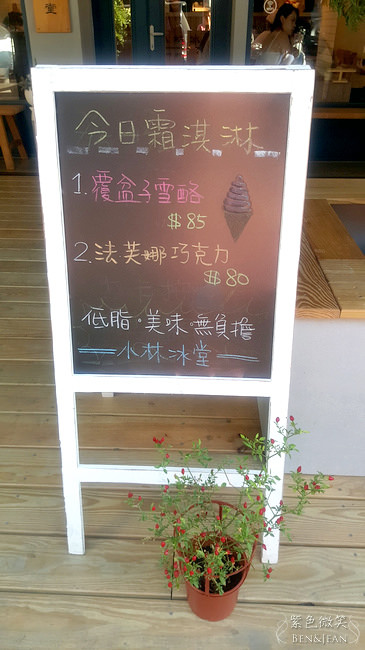 堂
今日霜淇淋
1.覆盆子雪酪
$85
2.法芙娜巧克力
$80
低脂·美味·無負擔
小林冰堂
紫色微笑
BEN&JEAN